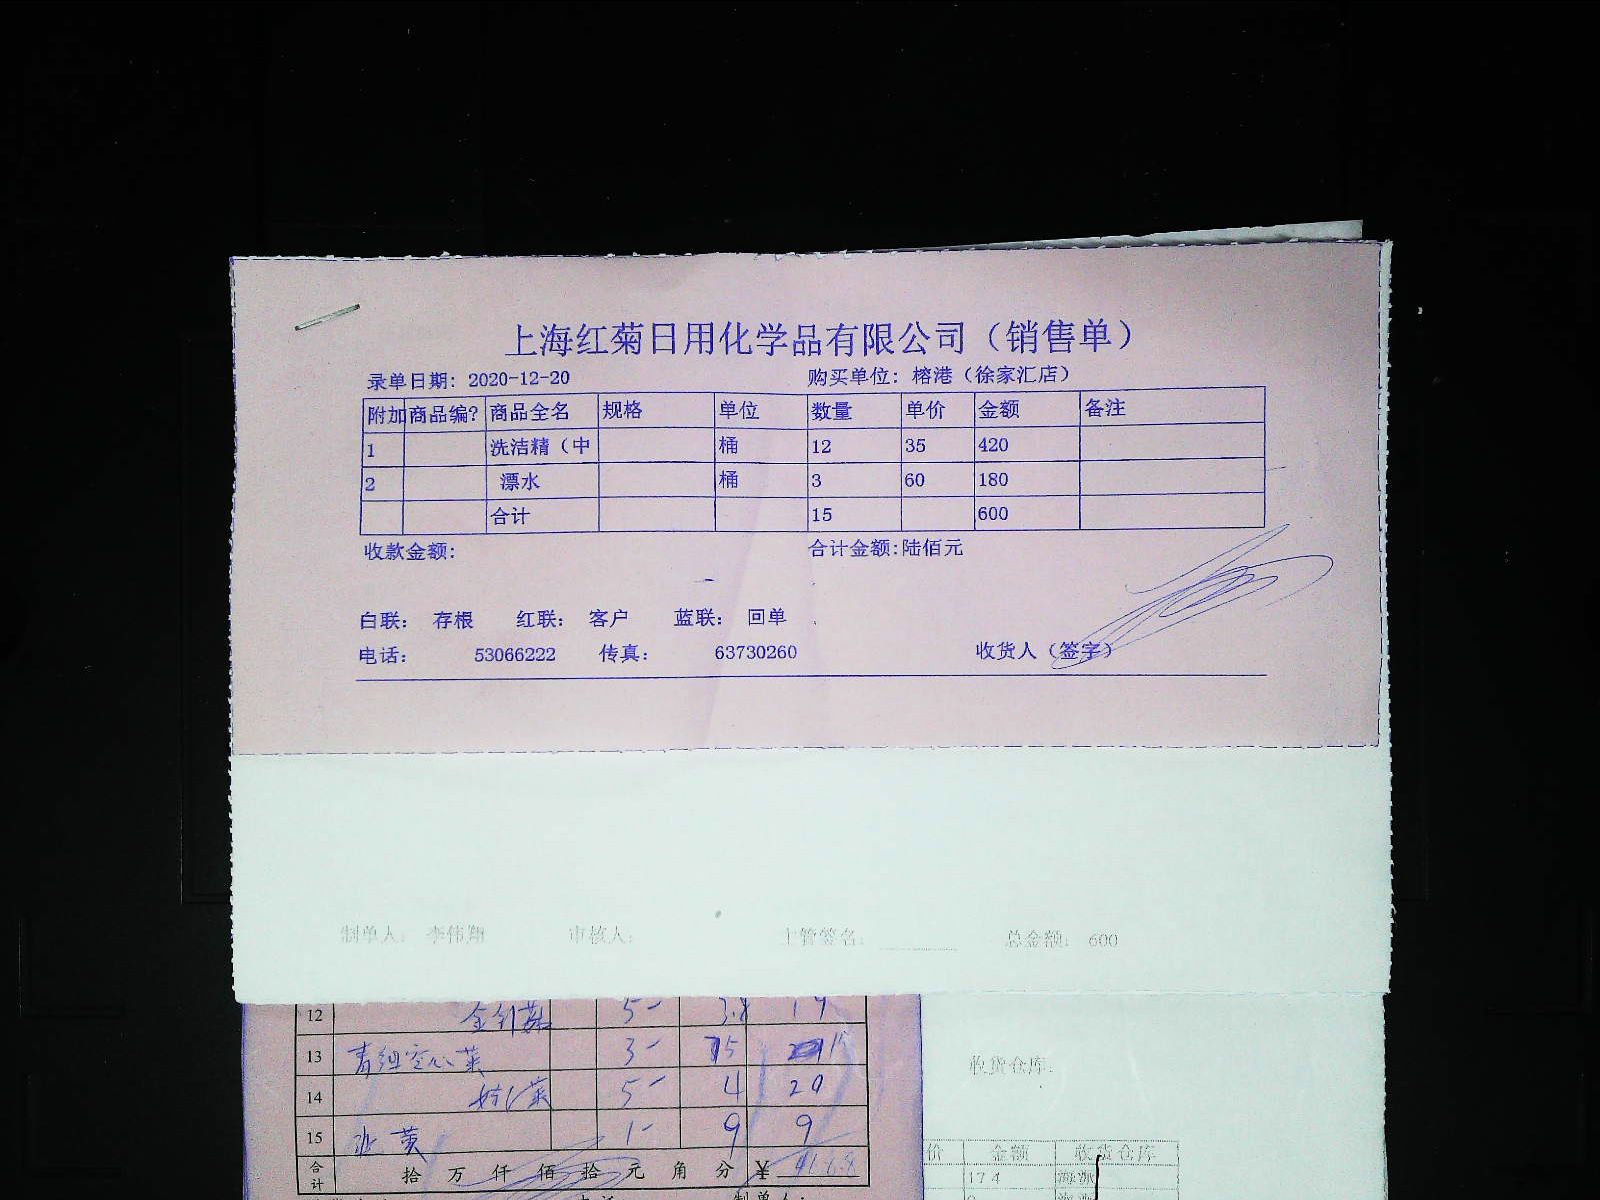 上海红菊日用化学品有限公司（销售单）
录单日期: 2020-12-20 购买单位: 榕港（徐家汇店）
附加 商品编? 商品全名 规格 单位 数量 单价 金额 备注
1 洗洁精（中 桶 12 35 420
2 漂水 桶 3 60 180
合计 15 600
收款金额: 合计金额:陆佰元
白联: 存根 红联: 客户 蓝联: 回单
电话: 53066222 传真: 63730260 收货人（签字）
制单人: 李伟翔 审核人: 主管签名: 总金额: 600
12 金针菇 5- 3.8 19
13 空心菜 3- 15
14 5- 4 20
15 1- 9 9
合计 拾 万 仟 佰 拾 元 角 分 ¥
收货仓库:
价 金额 收货仓库
174